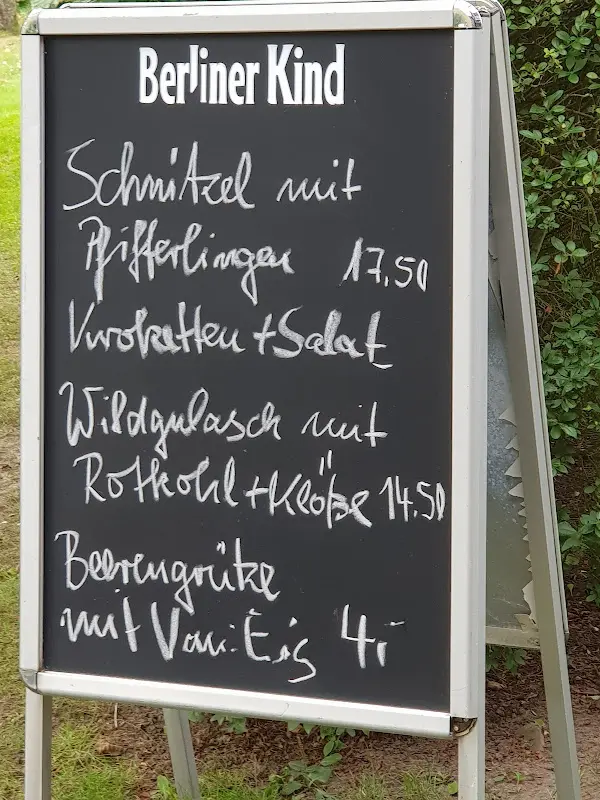 Berliner Kind
Schnitzel mit
Pfifferlingen 17.50
Kroketten + Salat
Wildgulasch mit
Rotkohl + Klöße 14.50
Beerengrütze
mit Van. Eis 4,-